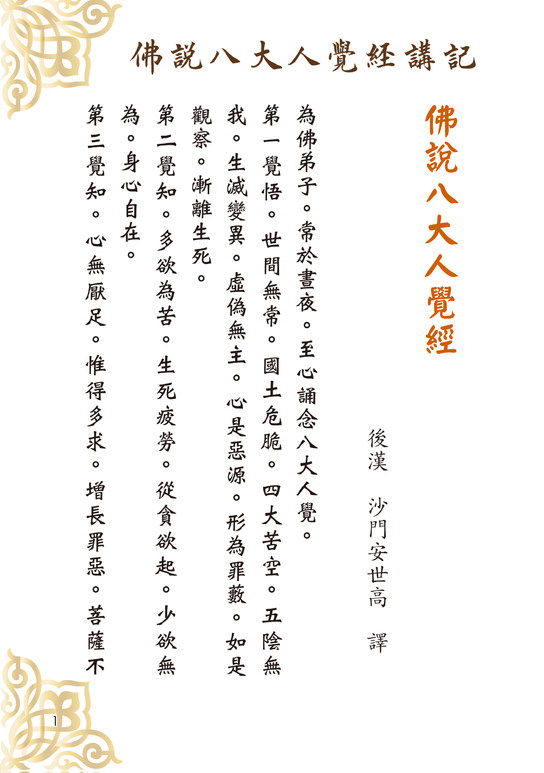 佛說八大人覺経講記
佛說八大人覺經
後漢　沙門安世高　譯
為佛弟子。常於晝夜。至心誦念八大人覺。
第一覺悟。世間無常。國土危脆。四大苦空。五陰無
我。生滅變異。虛偽無主。心是惡源。形為罪藪。如是
觀察。漸離生死。
第二覺知。多欲為苦。生死疲勞。從貪欲起。少欲無
為。身心自在。
第三覺知。心無厭足。惟得多求。增長罪惡。菩薩不
1